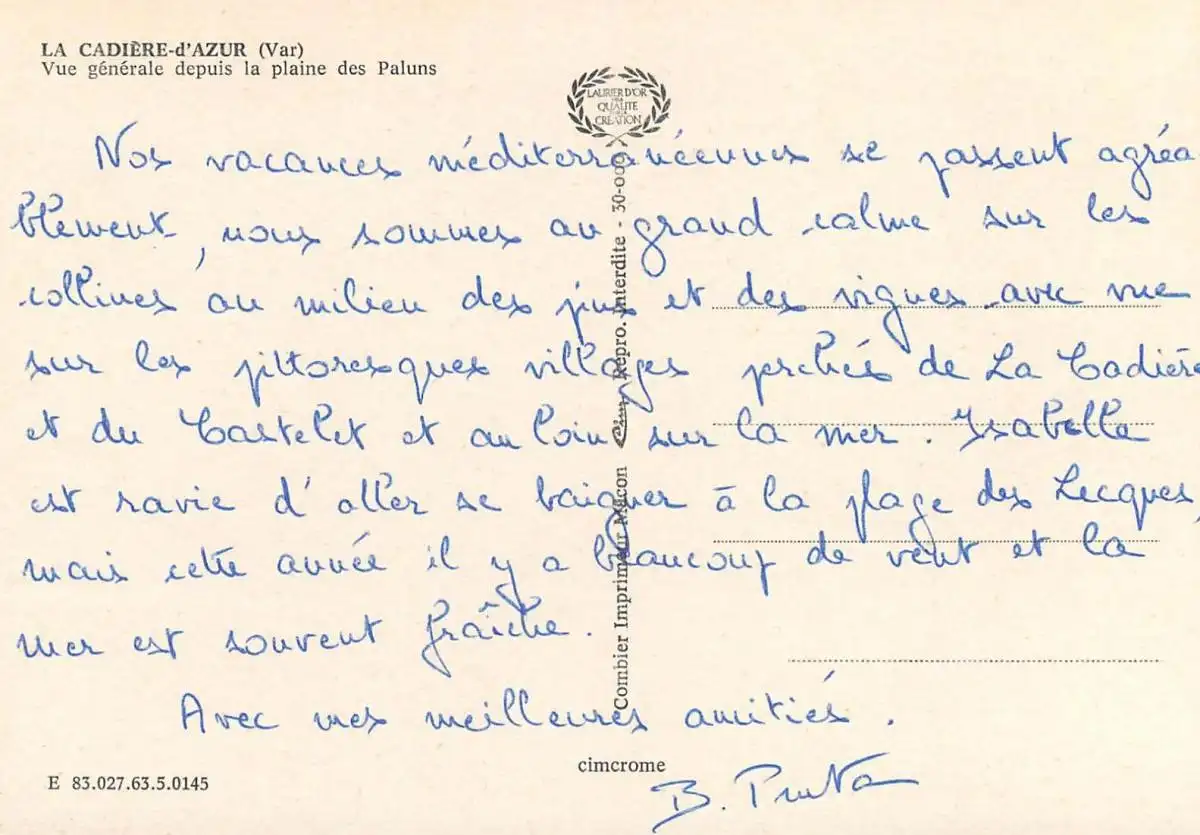 LA CADIÈRE-d'AZUR (Var)
Vue générale depuis la plaine des Paluns
LAURIER D'OR
QUALITÉ
CRÉATION
Nos vacances méditerranéennes se passent agréa
blement, nous sommes au grand calme sur les
collines au milieu des pins et des vignes avec vue
sur les pittoresques villages perchés de La Cadière
et du Castelet et au loin sur la mer. Isabelle
est ravie d'aller se baigner à la plage des Lecques,
mais cette année il y a beaucoup de vent et la
mer est souvent fraîche.
Avec mes meilleures amitiés.
B.
Combier Imprimeur Mâcon Cim Repro. Interdite - 30-000
cimcrome
E 83.027.63.5.0145